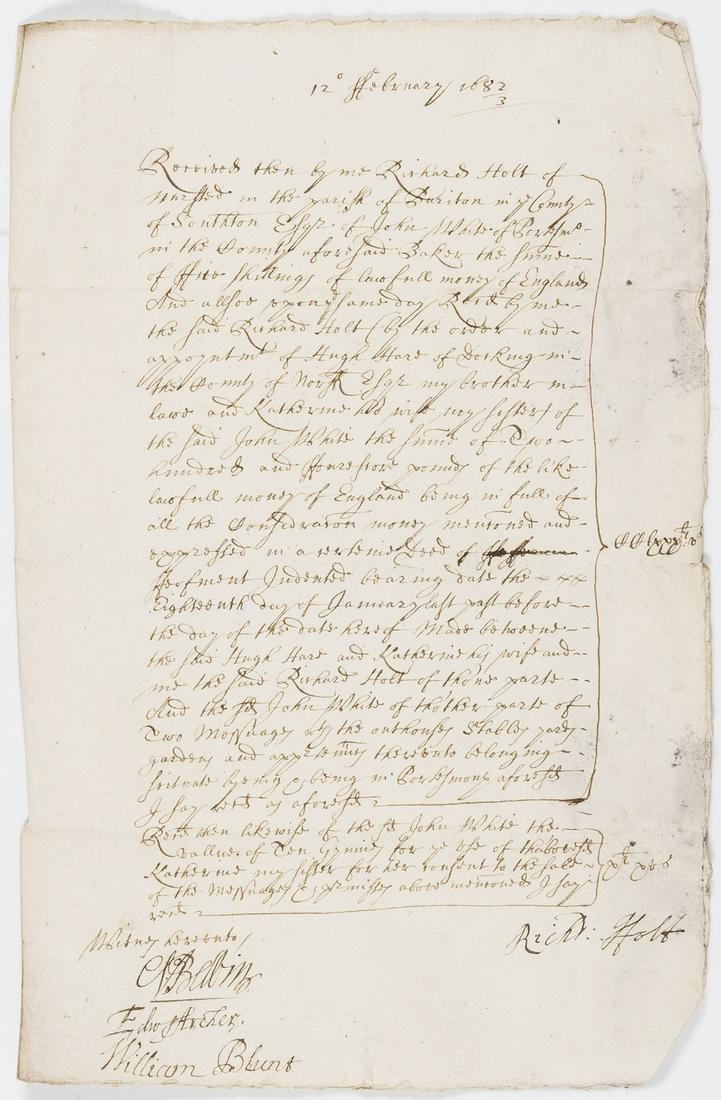 12° ffebruary 168 2/3
Received then by me Richard Holt of
Nursted in the parish of Buriton in ye County
of Southton Esqr of John White of Portsmo
in the County aforesaid Baker the summe
of ffive shillings of lawfull money of England
And allsoe upon ye same day Recd by me
the said Richard Holt (by the order and
appoyntmt of Hugh Hare of Docking in
the County of Norff Esqr my brother in
lawe and Katherine his wife my sister) of
the said John White the summe of Two
hundred and ffourescore pounds of the like
lawfull money of England being in full of
all the Considracon money mentioned and
expressed in a certeine deed of
ffeofment Indented bearing date the
Eighteenth day of January last past before
the day of the date hereof Made betweene
the said Hugh Hare and Katherine his wife and
me the said Richard Holt of thone parte
And the sd John White of thother parte of
Two Messuages wth the outhouses Stables yards
gardens and appurtennces thereunto belonging
scituate lyeing & being in Portsmouth aforesd
I say recd as aforesd
CClxxxli vs
Recd then likewise of the sd John White the
vallue of Ten Gynnies for ye use of thabovesd
Katherine my sister for her consent to the sale
of the Messuages & prmisses above mentioned I say
recd
xli xvs
Richd: Holt
Witnes hereunto
Belbin
Edw: Archer.
William Blunt